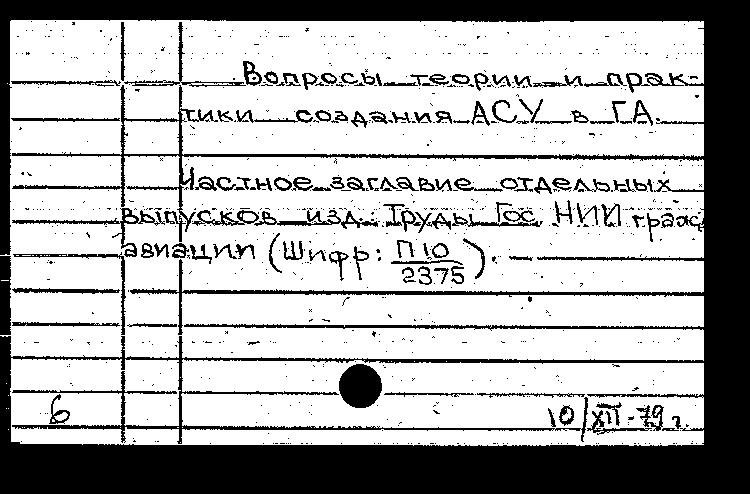 Вопросы теории и прак-
тики создания АСУ в ГА.
Частное заглавие отдельных
выпусков изд. Труды Гос. НИИ гражд.
авиации (Шифр: П10/2375). —
6
10/XII-79 г.